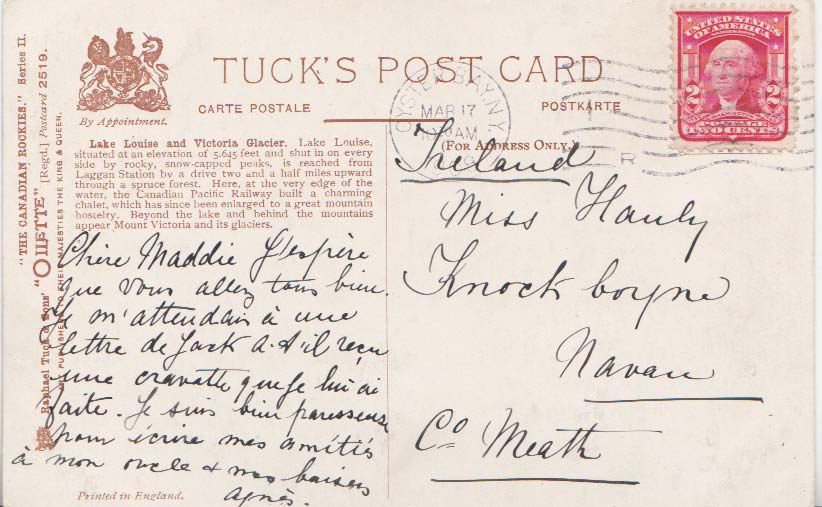 "THE CANADIAN ROCKIES." Series II.
Raphael Tuck & Sons' "OILETTE" [Regd.] Postcard 2519.
ART PUBLISHERS TO THEIR MAJESTIES THE KING & QUEEN.
By Appointment.
TUCK'S POST CARD
CARTE POSTALE
POSTKARTE
(FOR ADDRESS ONLY.)
Lake Louise and Victoria Glacier. Lake Louise,
situated at an elevation of 5,645 feet and shut in on every
side by rocky, snow-capped peaks, is reached from
Laggan Station by a drive two and a half miles upward
through a spruce forest. Here, at the very edge of the
water, the Canadian Pacific Railway built a charming
chalet, which has since been enlarged to a great mountain
hostelry. Beyond the lake and behind the mountains
appear Mount Victoria and its glaciers.
Chère Maddie J'espère
que vous allez tous bien.
Je m'attendais à une
lettre de Jack a-t'il reçu
une cravatte que je lui ai
faite. Je suis bien paresseuse
pour écrire mes amitiés
à mon oncle & mes baisers
Agnès.
Printed in England.
OYSTER BAY, N.Y.
MAR 17
AM
UNITED STATES
OF AMERICA
2 2
TWO CENTS
Ireland
Miss Hanly
Knock boyne
Navan
Co Meath